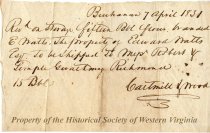 Buchanan 7 April 1831
Recd on Storage fifteen Bbl Flour branded
E Watts. The property of Edward Watts
Esq. To be shipped to Messrs Robert &
Temple Gwathmey Richmond
15 Bbls
Cartmill & Wood
Property of the Historical Society of Western Virginia